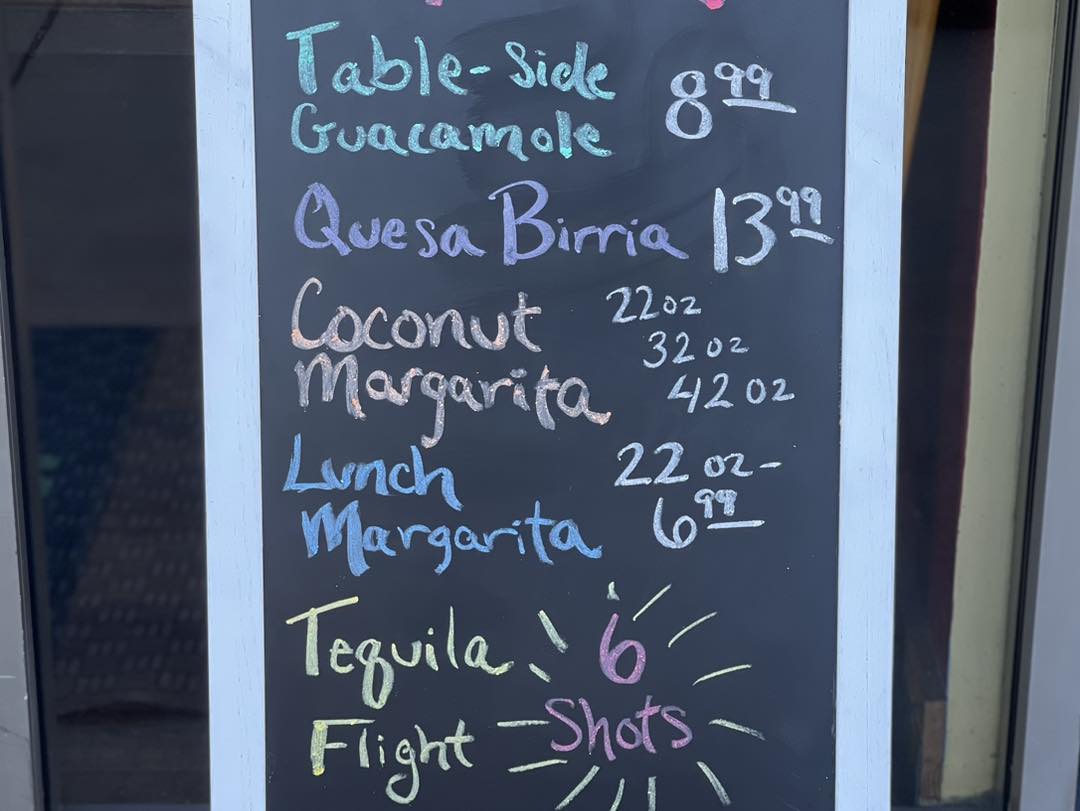 Table-Side
Guacamole 8 99
Quesa Birria 13 99
Coconut 22oz
32oz
Margarita 42oz
Lunch 22 oz-
Margarita 6 99
Tequila 6
Flight Shots